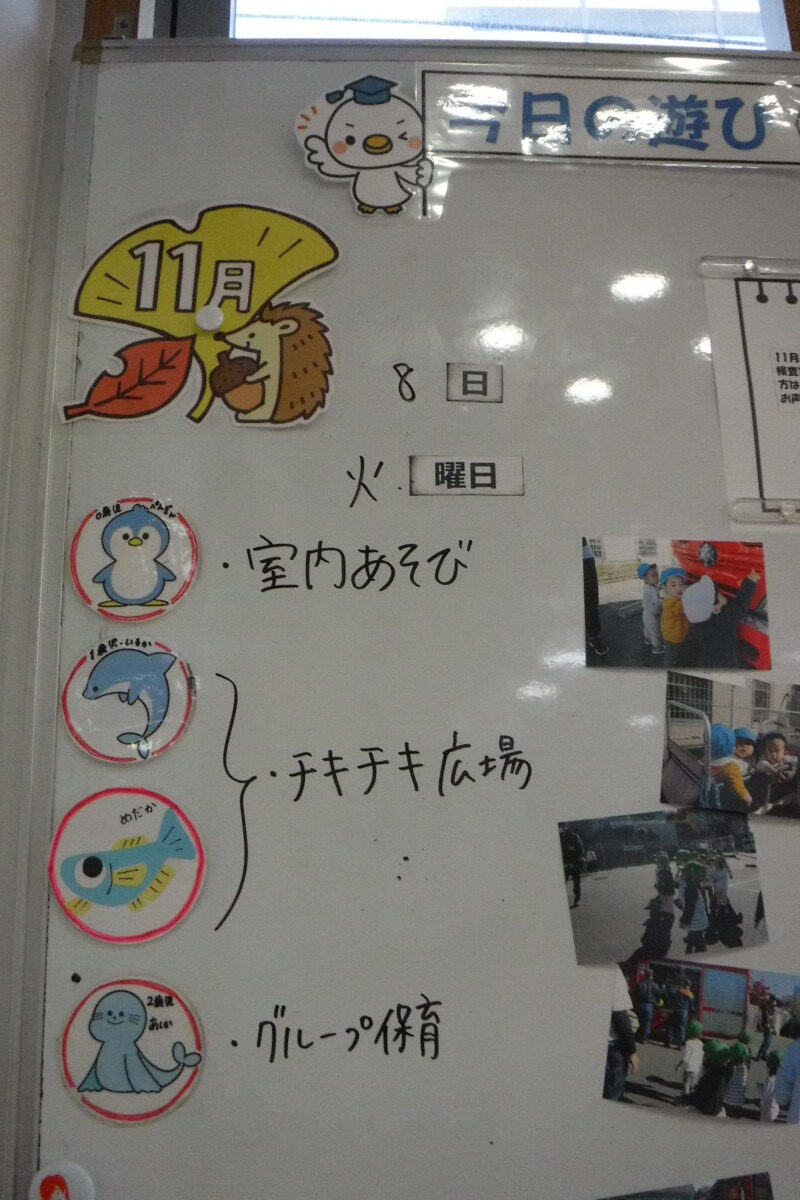 今日の遊び
11月
8 日
火 曜日
11月
検査
方は
お声
0歳児 ぺんぎん
・室内あそび
1歳児・いるか
・チキチキ広場
めだか
2歳児
あしか
・グループ保育